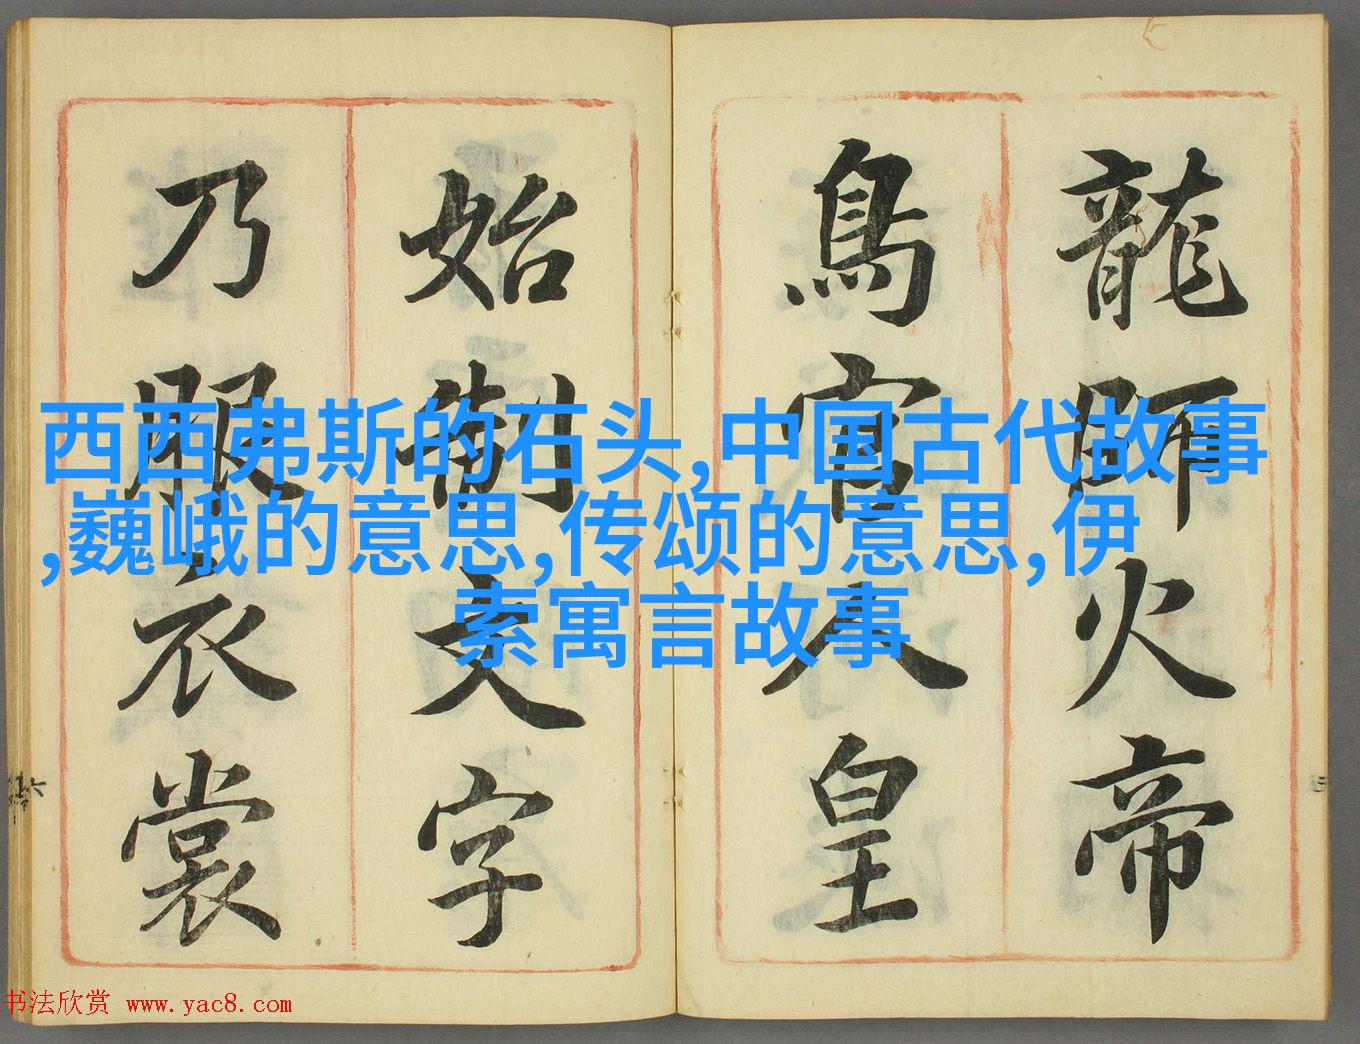 龍師火帝
鳥官人皇
始制文字
乃服衣裳
西西弗斯的石头,中国古代故事
,巍峨的意思,传颂的意思,伊
索寓言故事
书法欣赏 www.yac8.com